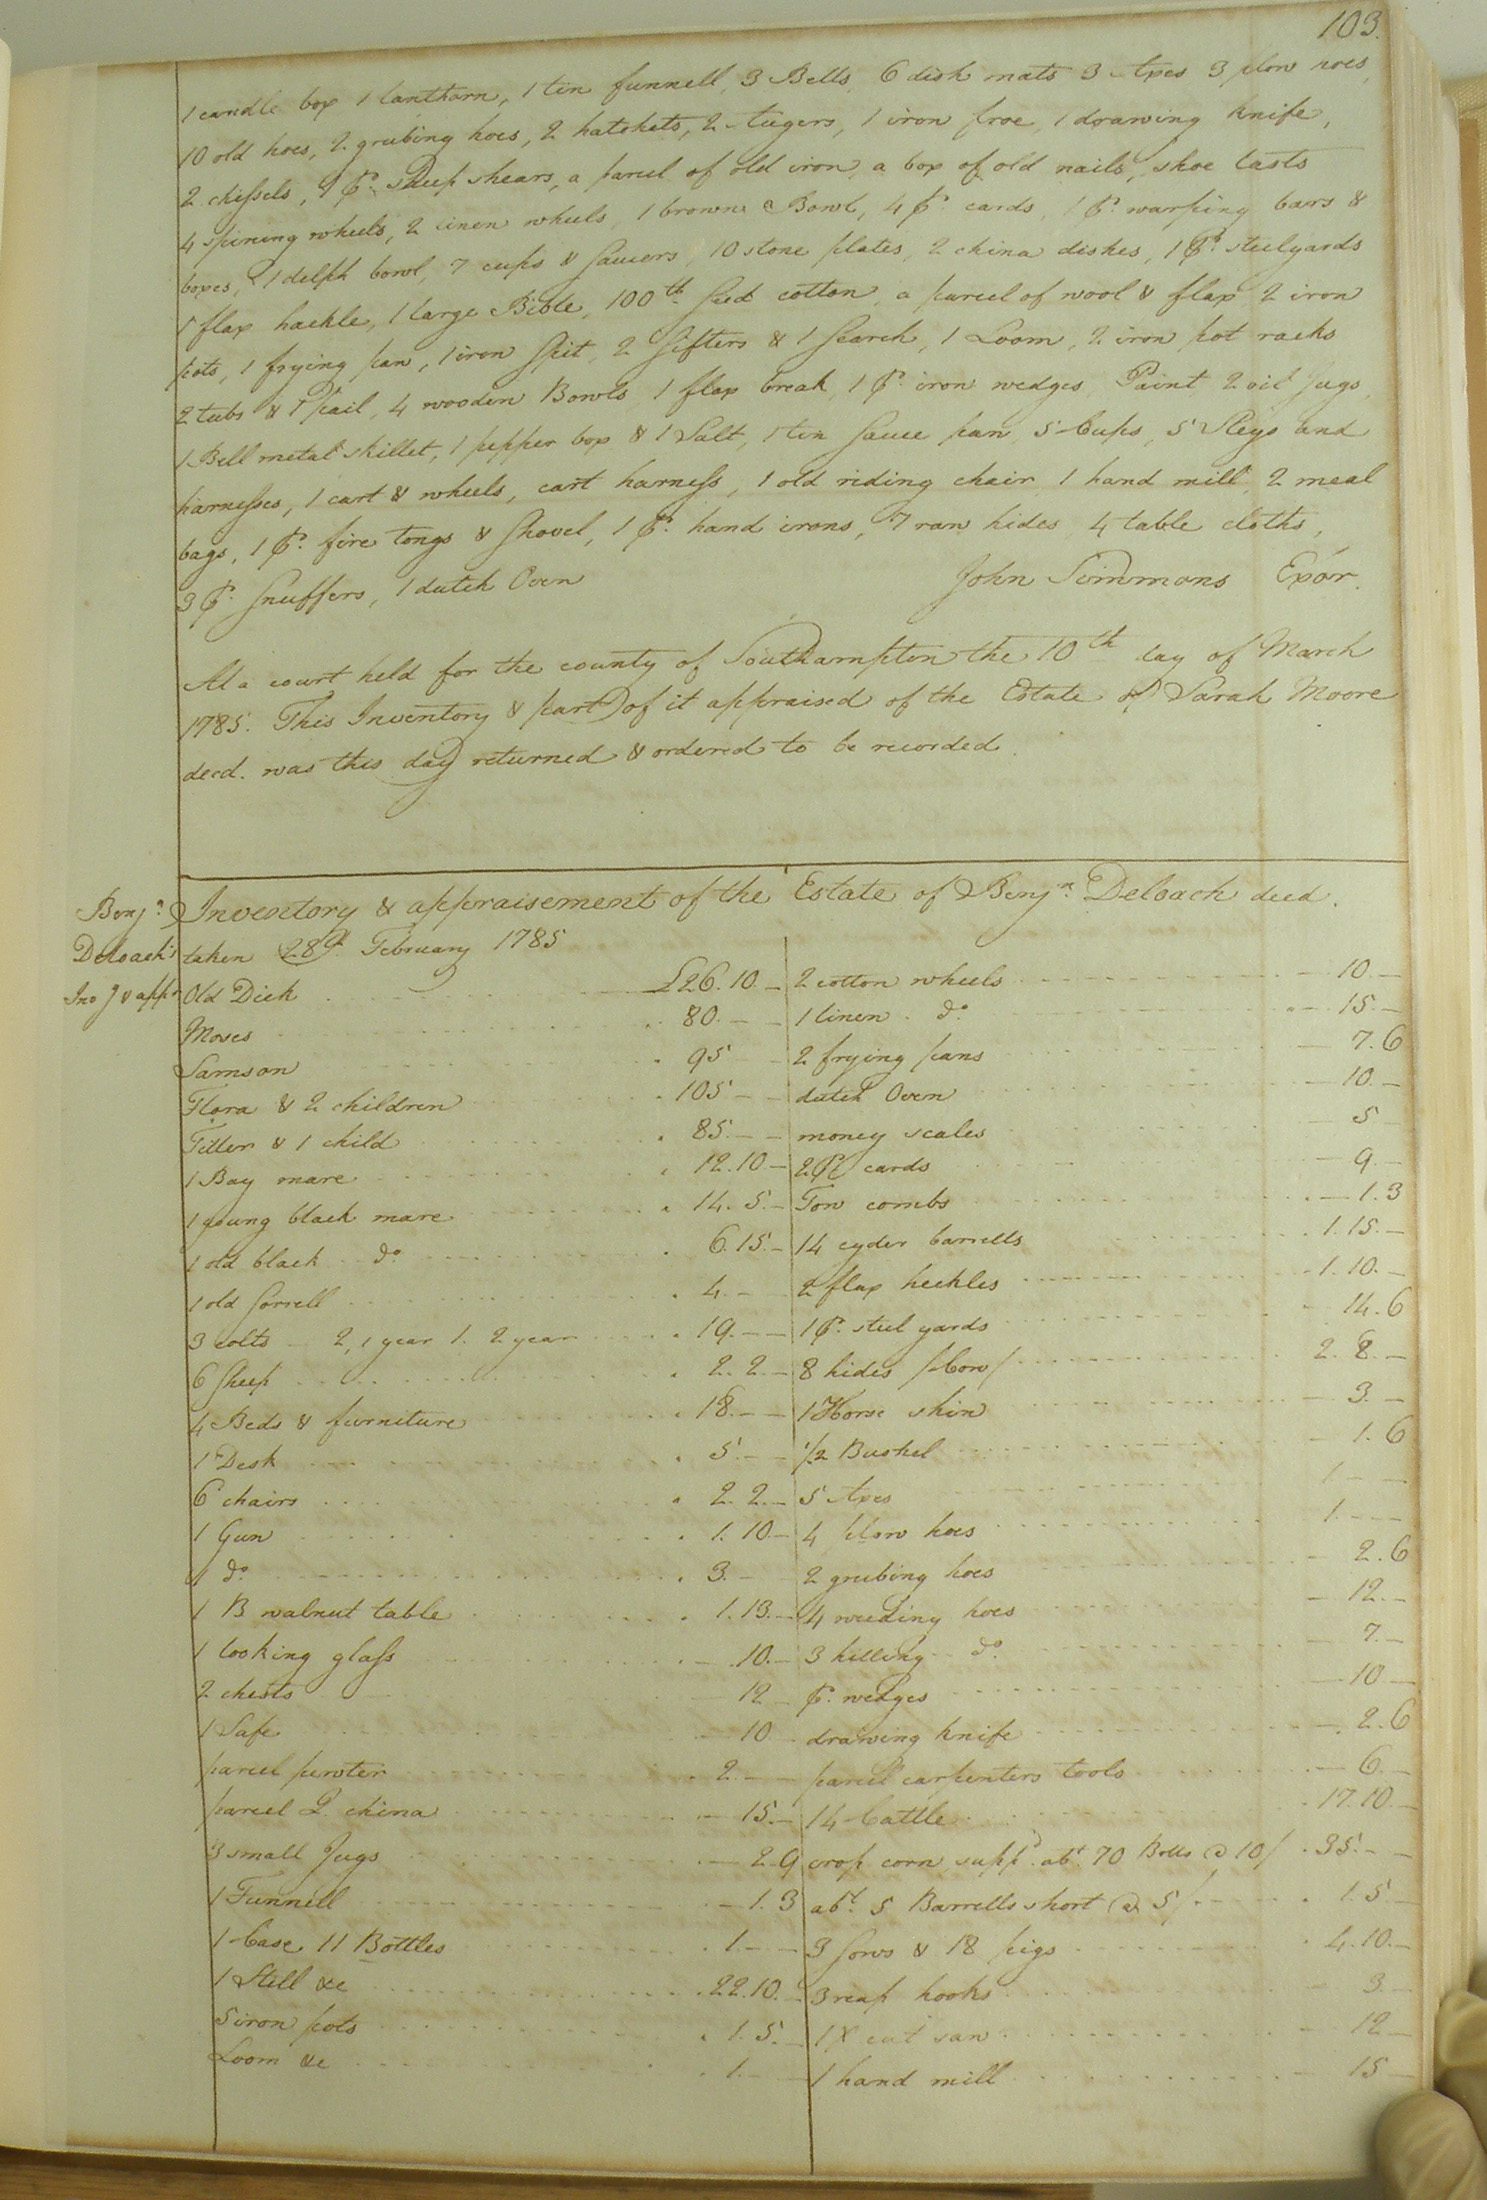 103.
1 candle box 1 lanthorn, 1 tin funnell, 3 Bells, 6 dish mats 3 Axes 3 plow hoes,
10 old hoes, 2 grubing hoes, 2 hatchets, 2 Augers, 1 iron froe, 1 drawing knife,
2 chissels, 1 pr. sheep shears, a parcel of old iron, a box of old nails, shoe lasts
4 spining wheels, 2 linen wheels, 1 brown Bowl, 4 pr. cards, 1 pr. warping bars &
boxes, 1 delph bowl, 7 cups & Saucers, 10 stone plates, 2 china dishes, 1 pr. steelyards
1 flax hackle, 1 large Bible, 100 th. Seed cotton, a parcel of wool & flax, 2 iron
pots, 1 frying pan, 1 iron Spit, 2 Sifters & 1 Search, 1 Loom, 2 iron pot racks
2 tubs & 1 pail, 4 wooden Bowls 1 flax break, 1 pr. iron wedges, Paint, 2 oil Jugs,
1 Bell metal skillet, 1 pepper box & 1 Salt, 1 tin Sauce pan, 5 Cups, 5 Sleys and
harnesses, 1 cart & wheels, cart harness, 1 old riding chair 1 hand mill, 2 meal
bags, 1 pr. fire tongs & Shovel, 1 pr. hand irons, 7 raw hides 4 table cloths,
3 pr. Snuffers, 1 dutch Oven John Simmons Exór.
At a court held for the county of Southampton the 10th day of March
1785. This Inventory & part of it appraised of the Estate of Sarah Moore
decd. was this day returned & ordered to be recorded.
Benjn. Deloach's
Inv.y & appt
Inventory & appraisement of the Estate of Benjn. Deloach decd.
taken 28th. February 1785
Old Dick £26.10.- 2 cotton wheels 10.-
Moses 80.- - 1 linen do. 15.-
Samson 95 - - 2 frying pans 7.6
Flora & 2 children 105 - - dutch Oven 10.-
Tiller & 1 child 85.- - money scales 5
1 Bay mare 12.10- 2 pr. cards 9.-
1 young black mare 14.5.- Tow combs 1.3
1 old black do. 6.15.- 14 cyder barrells 1.15.-
1 old Sorrell 4.- - 2 flax heckles 1.10.-
3 colts 2, 1 year 1. 2 year 19.- - 1 pr. steel yards 14.6
6 Sheep 2.2.- 8 hides /Cow/ 2.8.-
4 Beds & furniture 18.- - 1 Horse skin 3.-
1 Desk 5.- - 1/2 Bushel 1.6
6 chairs 2.2.- 5 Axes 1.- -
1 Gun 1.10- 4 plow hoes 1.- -
1 do. 3.- 2 grubing hoes 2.6
1 B walnut table 1.13.- 4 weeding hoes 12.-
1 looking glass 10.- 3 hilling do. 7.-
2 chests 12 - pr. wedges 10 -
1 Safe 10 - drawing knife 2.6
parcel pewter 2.- - parcel carpenters tools 6.-
parcel Q. china 15.- 14 Cattle 17.10.-
3 small Jugs 2.9 crop corn suppd. abt. 70 Bolls @ 10/ 35.- -
1 Funnell 1.3 abt. 5 Barrells short @ 5/ 1.5.-
1 Case 11 Bottles 1.- - 3 Sows & 18 pigs 4.10.-
1 Still &c 22.10.- 3 reap hooks 3.-
5 iron pots 1.5.- 1 X cut saw 12 -
Loom &c 1.- - 1 hand mill 15 -